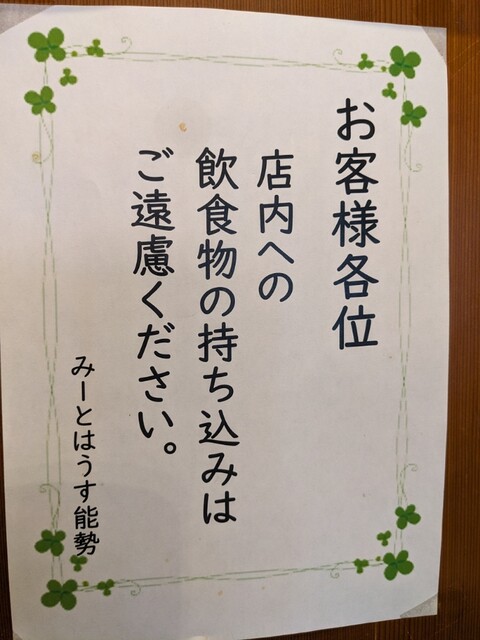 お客様各位
店内への
飲食物の持ち込みは
ご遠慮ください。
みーとはうす能勢